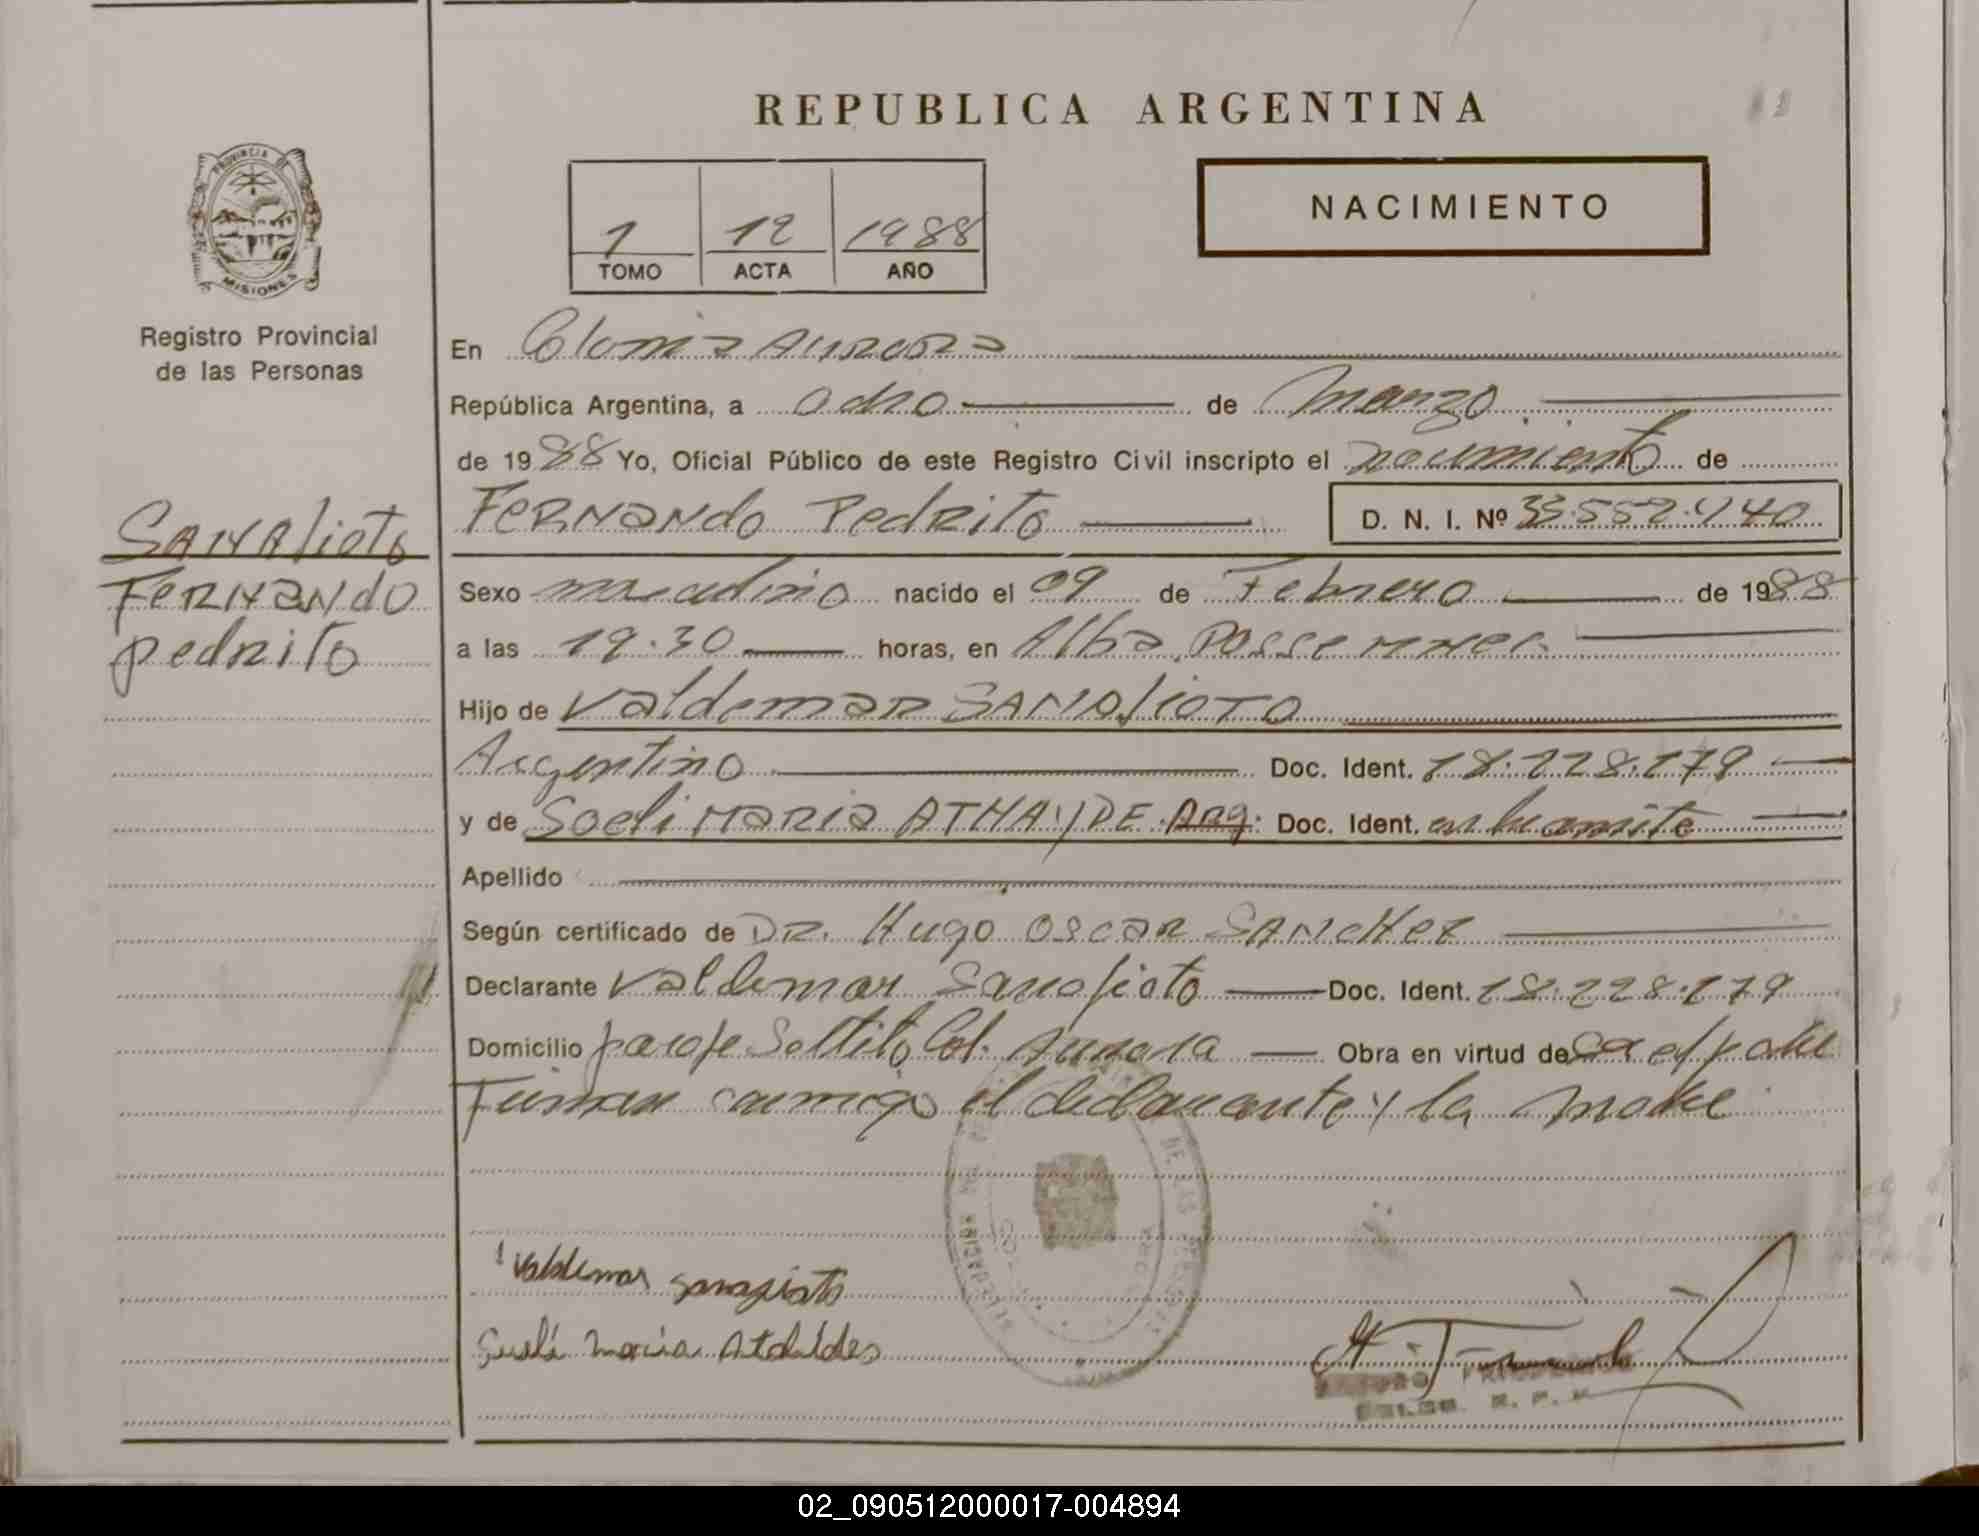 REPUBLICA ARGENTINA
PROVINCIA DE MISIONES
1 12 1988
TOMO ACTA AÑO
NACIMIENTO
Registro Provincial
de las Personas
En Colonia Aurora
República Argentina, a ocho de marzo
de 1988 Yo, Oficial Público de este Registro Civil inscripto el nacimiento de
Fernando Pedrito D. N. I. Nº 33.552.140
SANAfioto
Fernando
pedrito
Sexo masculino nacido el 09 de Febrero de 1988
a las 19.30 horas, en Alba Posse Mnes.
Hijo de Valdemar SANAfioTO
Argentino Doc. Ident. 18.228.179
y de Soeli MARIA ATHAYDE Arg. Doc. Ident. en tramite
Apellido
Según certificado de DR. Hugo OSCAR SANCHEZ
Declarante Valdemar Sanafioto Doc. Ident. 18.228.179
Domicilio paraje Saltito Col. Aurora Obra en virtud de ser el padre
Firman conmigo el declarante y la madre
Valdemar
María
02_090512000017-004894